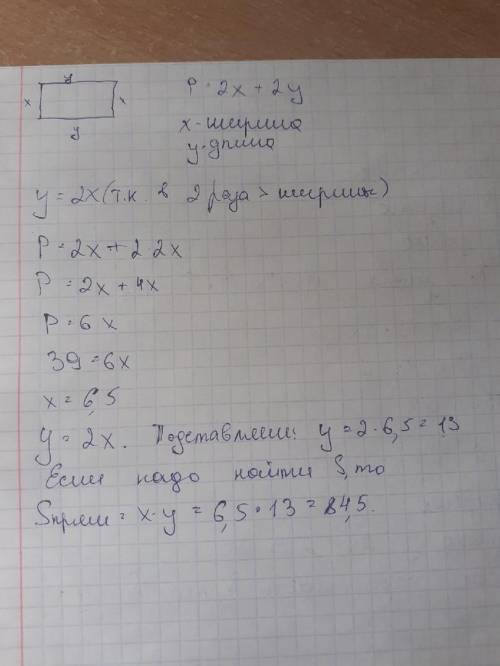 y
P = 2x + 2y
x x
x-ширина
y
y-длина
y = 2x (т.к. в 2 раза > ширины)
P = 2x + 2 2x
P = 2x + 4x
P = 6x
39 = 6x
x = 6,5
y = 2x. Подставляем: y = 2·6,5 = 13
Если надо найти S, то
Sпрям = x·y = 6,5·13 = 84,5.